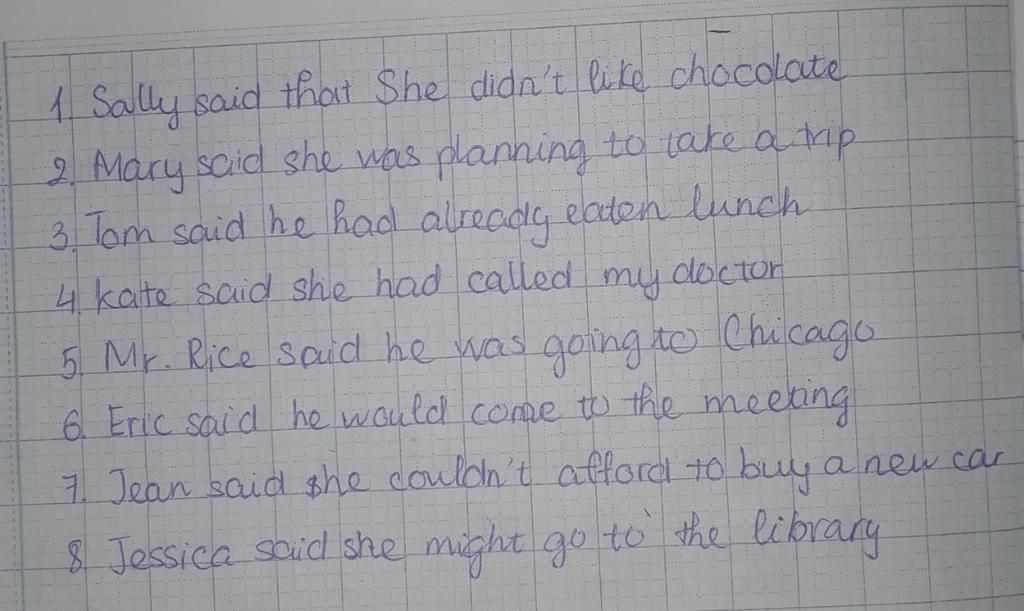 1. Sally said that She didn't like chocolate
2. Mary said she was planning to take a trip
3. Tom said he had already eaten lunch
4. Kate said she had called my doctor
5. Mr. Rice said he was going to Chicago
6. Eric said he would come to the meeting
7. Jean said she couldn't afford to buy a new car
8. Jessica said she might go to the library